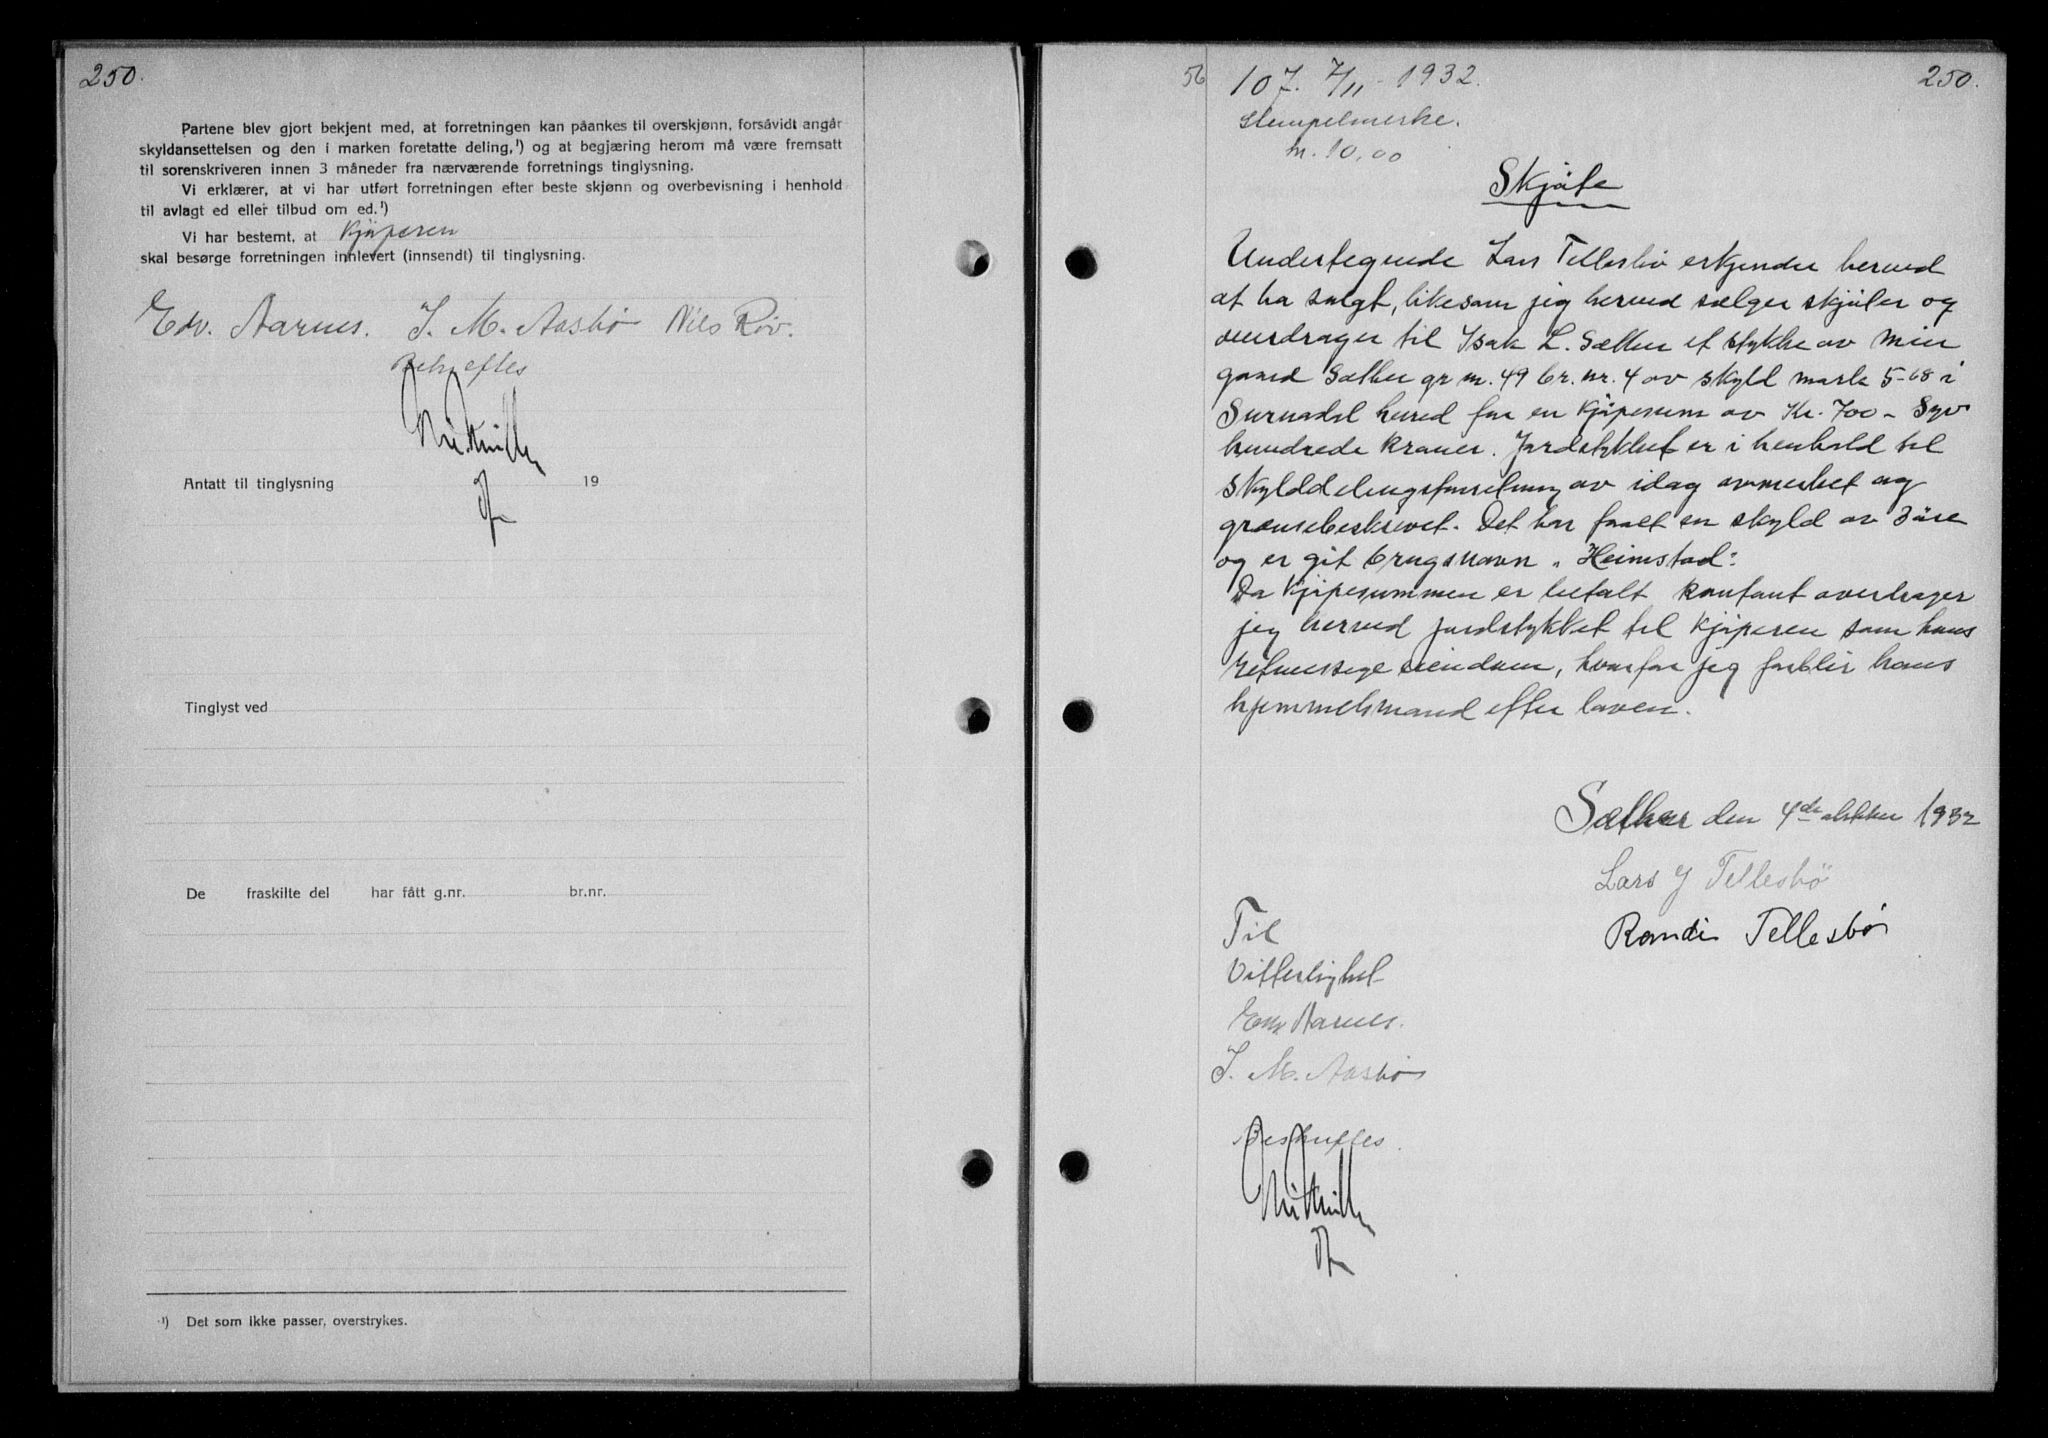 250.
Partene blev gjort bekjent med, at forretningen kan påankes til overskjønn, forsåvidt angår
skyldansettelsen og den i marken foretatte deling,¹) og at begjæring herom må være fremsatt
til sorenskriveren innen 3 måneder fra nærværende forretnings tinglysning.
Vi erklærer, at vi har utført forretningen efter beste skjønn og overbevisning i henhold
til avlagt ed eller tilbud om ed.¹)
Vi har bestemt, at Kjøperen
skal besørge forretningen innlevert (innsendt) til tinglysning.
Edv. Aarnes. I. M. Aasbø Nils Røv.
Bekreftes
Antatt til tinglysning 19
Tinglyst ved
De fraskilte del har fått g.nr. br.nr.
¹) Det som ikke passer, overstrykes.
56 107. 7/11 - 1932. 250.
Stempelmerke.
kr. 10,00
Skjøte
Undertegnede Lars Tellesbø erkjender herved
at ha solgt, likesom jeg herved sælger skjøter og
overdrager til Isak L. Sæther et stykke av min
gaard Sæther gr nr. 49 br. nr. 4 av skyld mark 5-68 i
Surnadal herred for en kjøpesum av Kr. 700 - Syv
hundrede kroner. Jordstykket er i henhold til
skylddelingsforretning av idag avmerket og
grænsebeskrevet. Det har faaet en skyld av 3 øre
og er git brugsnavn "Heimstad".
Da kjøpesummen er betalt kontant overdrager
jeg herved jordstykket til kjøperen som hans
retmessige eiendom, hvorfor jeg forblir hans
hjemmelsmand efter loven.
Sæther den 4de oktober 1932
Lars J Tellesbø
Randi Tellesbø
Til
Vitterlighet
Edv Aarnes.
I. M. Aasbø
Bekreftes.